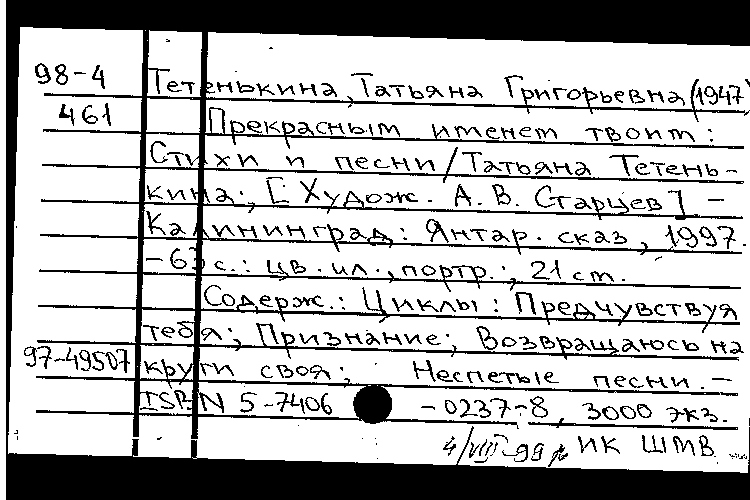 98-4 Тетенькина, Татьяна Григорьевна (1947)
461 Прекрасным именем твоим:
Стихи и песни / Татьяна Тетень-
кина; [Худож. А. В. Старцев] -
Калининград: Янтар. сказ, 1997.
- 63 с.: цв. ил., портр.; 21 см.
Содерж.: Циклы: Предчувствуя
тебя; Признание; Возвращаюсь на
97-49507 круги своя; Неспетые песни. -
ISBN 5-7406 -0237-8, 3000 экз.
4/VIII-99 ИК ШМВ